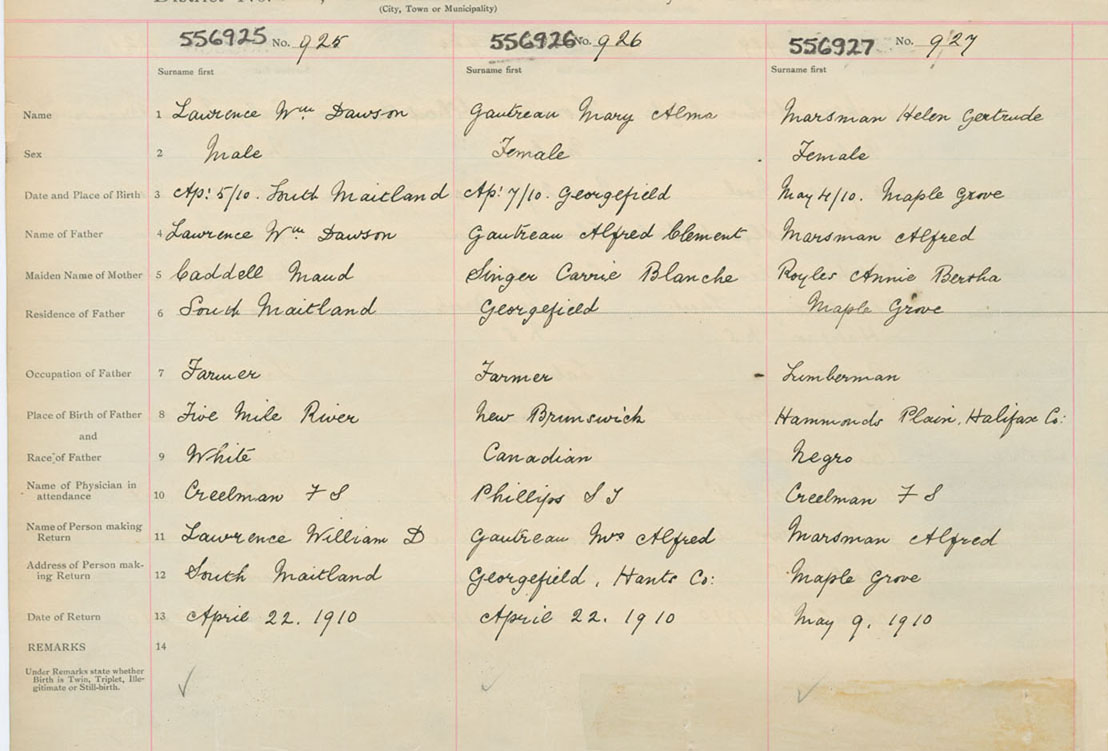 District No.
(City, Town or Municipality)
556925 No. 925 556926 No. 926 556927 No. 927
Surname first Surname first Surname first
Name 1 Lawrence Wm Dawson Gautreau Mary Alma Marsman Helen Gertrude
Sex 2 Male Female Female
Date and Place of Birth 3 Apl 5/10. South Maitland Apl 7/10. Georgefield May 4/10. Maple Grove
Name of Father 4 Lawrence Wm Dawson Gautreau Alfred Clement Marsman Alfred
Maiden Name of Mother 5 Caddell Maud Singer Carrie Blanche Royles Annie Bertha
Residence of Father 6 South Maitland Georgefield Maple Grove
Occupation of Father 7 Farmer Farmer Lumberman
Place of Birth of Father 8 Five Mile River New Brunswick Hammonds Plain, Halifax Co:
and
Race of Father 9 White Canadian Negro
Name of Physician in
attendance 10 Creelman F S Phillips S T Creelman F S
Name of Person making
Return 11 Lawrence William D Gautreau Mrs Alfred Marsman Alfred
Address of Person mak-
ing Return 12 South Maitland Georgefield, Hants Co: Maple Grove
Date of Return 13 April 22. 1910 April 22. 1910 May 9. 1910
REMARKS 14
Under Remarks state whether
Birth is Twin, Triplet, Ille-
gitimate or Still-birth.